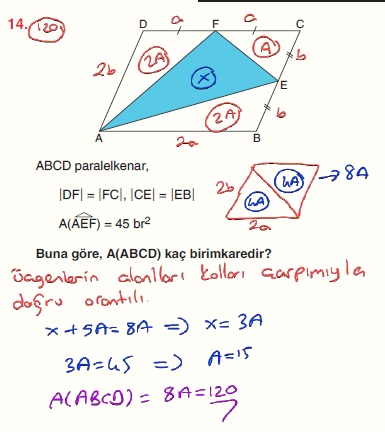 14. 120
D a F a C
2b 2A A b
x E
2A b
A 2a B
ABCD paralelkenar,
|DF| = |FC|, |CE| = |EB|
A(AEF) = 45 br²
2b 4A 4A → 8A
2a
Buna göre, A(ABCD) kaç birimkaredir?
Üçgenlerin alanları kolları çarpımıyla
doğru orantılı.
x + 5A = 8A ⇒ x = 3A
3A = 45 ⇒ A = 15
A(ABCD) = 8A = 120